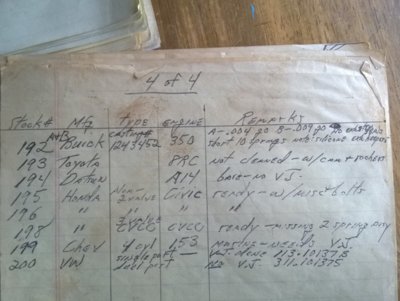 4 of 4
Stock# MFG TYPE ENGINE REMARKS
A+B casting# A-.004 go B-.009 go
192 Buick 1243452 350 start 10 springs note silicone
193 Toyota 8RC not cleaned - w/cam + rockers
194 Datsun A14 bare - no V.J.
195 Honda Non-2 valve Civic ready - w/misc bolts
196 " " "
198 " 3 valve CVCC CVCC ready - missing 2 spring
199 Chev 4 cyl 153 marine - needs V.J.
200 VW single port — V.J. done 113-101373
dual port no V.J. 311-101375